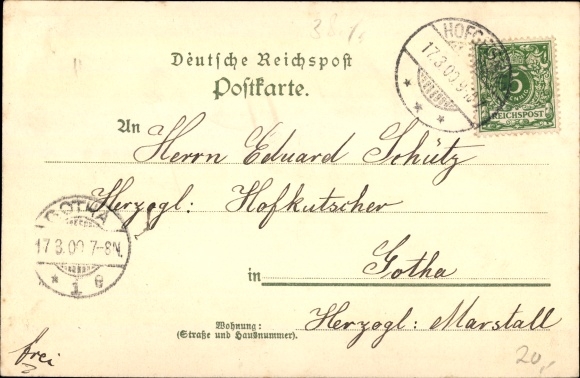 38.
Deutsche Reichspost
Postkarte.
17.3.00
5
REICHSPOST
An
Herrn Eduard Schütz
Herzogl: Hofkutscher
GOTHA
17 3.00 7-8N.
* 1 e
in Gotha
Wohnung:
(Straße und Hausnummer).
Herzogl: Marstall
frei
20,